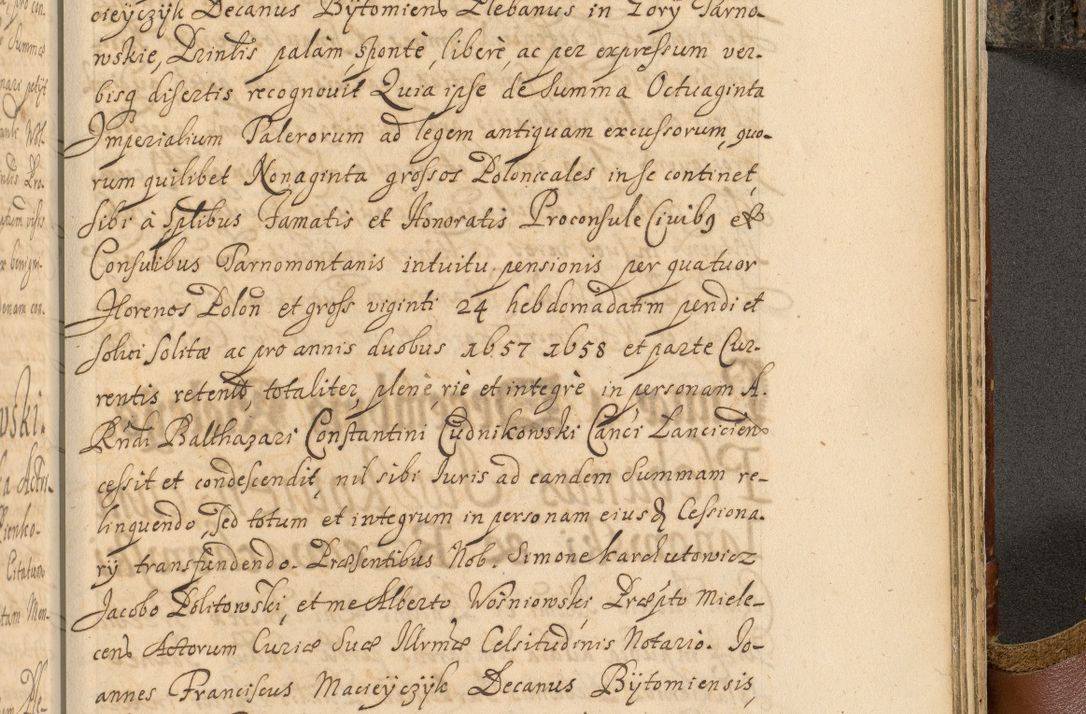 cieÿczÿk Decanus Bÿtomiens Plebanus in Zorÿ Tarno-
wskie, Printis palàm spontè, liberè, ac per expressum ver-
bisq disertis recognovit Quia ipse de Summa Octuaginta
Imperialium Talerorum ad legem antiquam excussorum, quo-
rum quilibet Nonaginta grossos Polonicales in se continet,
sibi à Sptlibus Famatis et Honoratis Proconsule Civibq et
Consulibus Tarnomontanis intuitu pensionis per quatuor
Florenos Polon et gross viginti 24 hebdomàdatim pendi et
solvi solitæ ac pro annis duobus 1657 1658 et parte Cur-
rentis retento, totaliter, plenè, riè et integrè in personam A.
Rndi Balthazari Constantini Cudnikowski Canci Lanciciens
cessit et condescendit, nil sibi Iuris ad eandem Summam re-
linquendo, sed totum et integrum in personam eius Cessiona-
rÿ transfundendo. Præsentibus Nob. Simone Karolutowicz
Jacobo Politowski, et me Alberto Wosniowski Præpto Miele-
cens Actorum Curiæ Suæ Illrmæ Celsitudinis Notario. Io-
annes Franciscus Macieÿczÿk Decanus Bÿtomiensis,